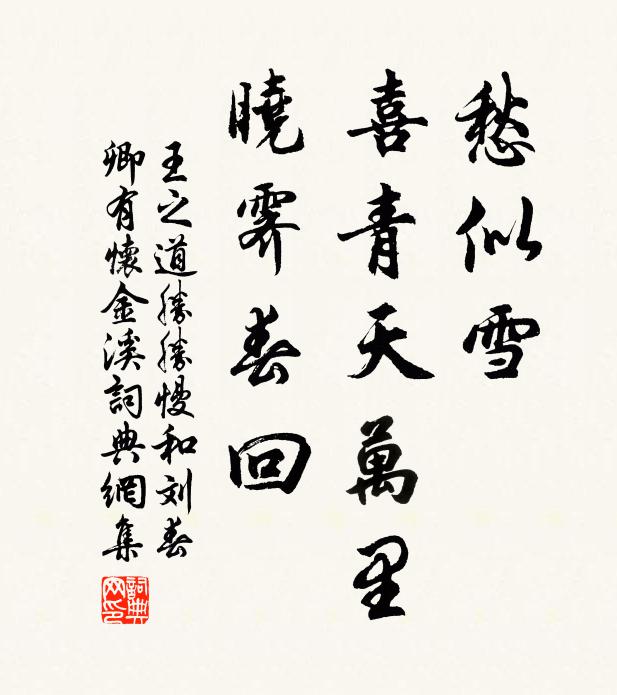 愁似雪
喜青天萬里
曉霽春回
王之道勝勝慢和刘春
卿有懷金溪詞典網集
詞典網印